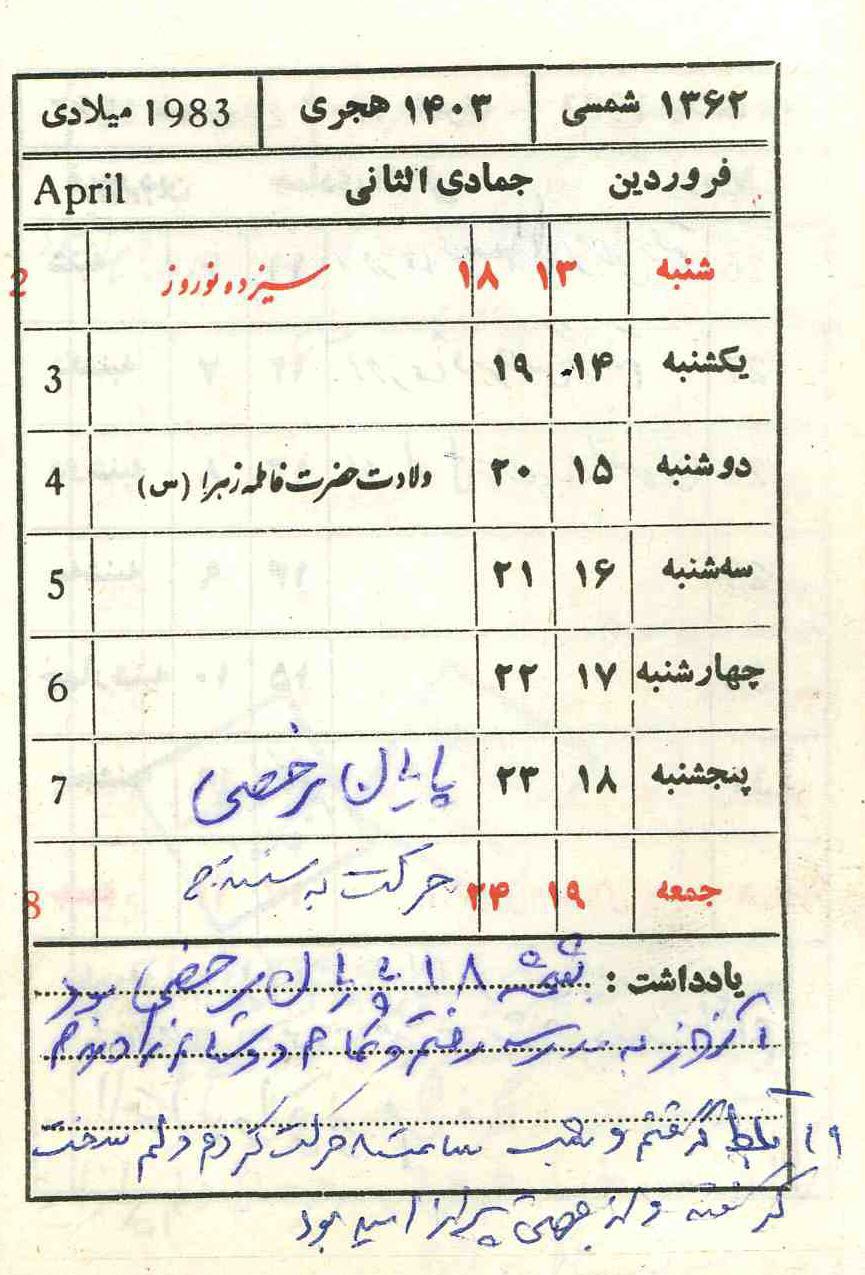 ۱۳۶۲ شمسی ۱۴۰۳ هجری 1983 میلادی
فروردین جمادی الثانی April
شنبه ۱۳ ۱۸ سیزده نوروز 2
یکشنبه ۱۴ ۱۹ 3
دوشنبه ۱۵ ۲۰ ولادت حضرت فاطمه زهرا (س) 4
سه‌شنبه ۱۶ ۲۱ 5
چهارشنبه ۱۷ ۲۲ 6
پنجشنبه ۱۸ ۲۳ پایان مرخصی 7
جمعه ۱۹ ۲۴ حرکت به سنندج 8
یادداشت : ۱۸ پایان مرخصی بود
آنروز به مدرسه رفتم و تمام دوستانم را دیدم
۱۹ بلیط گرفتم و شب ساعت حرکت کردم دلم سخت
گرفته و از جهتی پر از امید بود